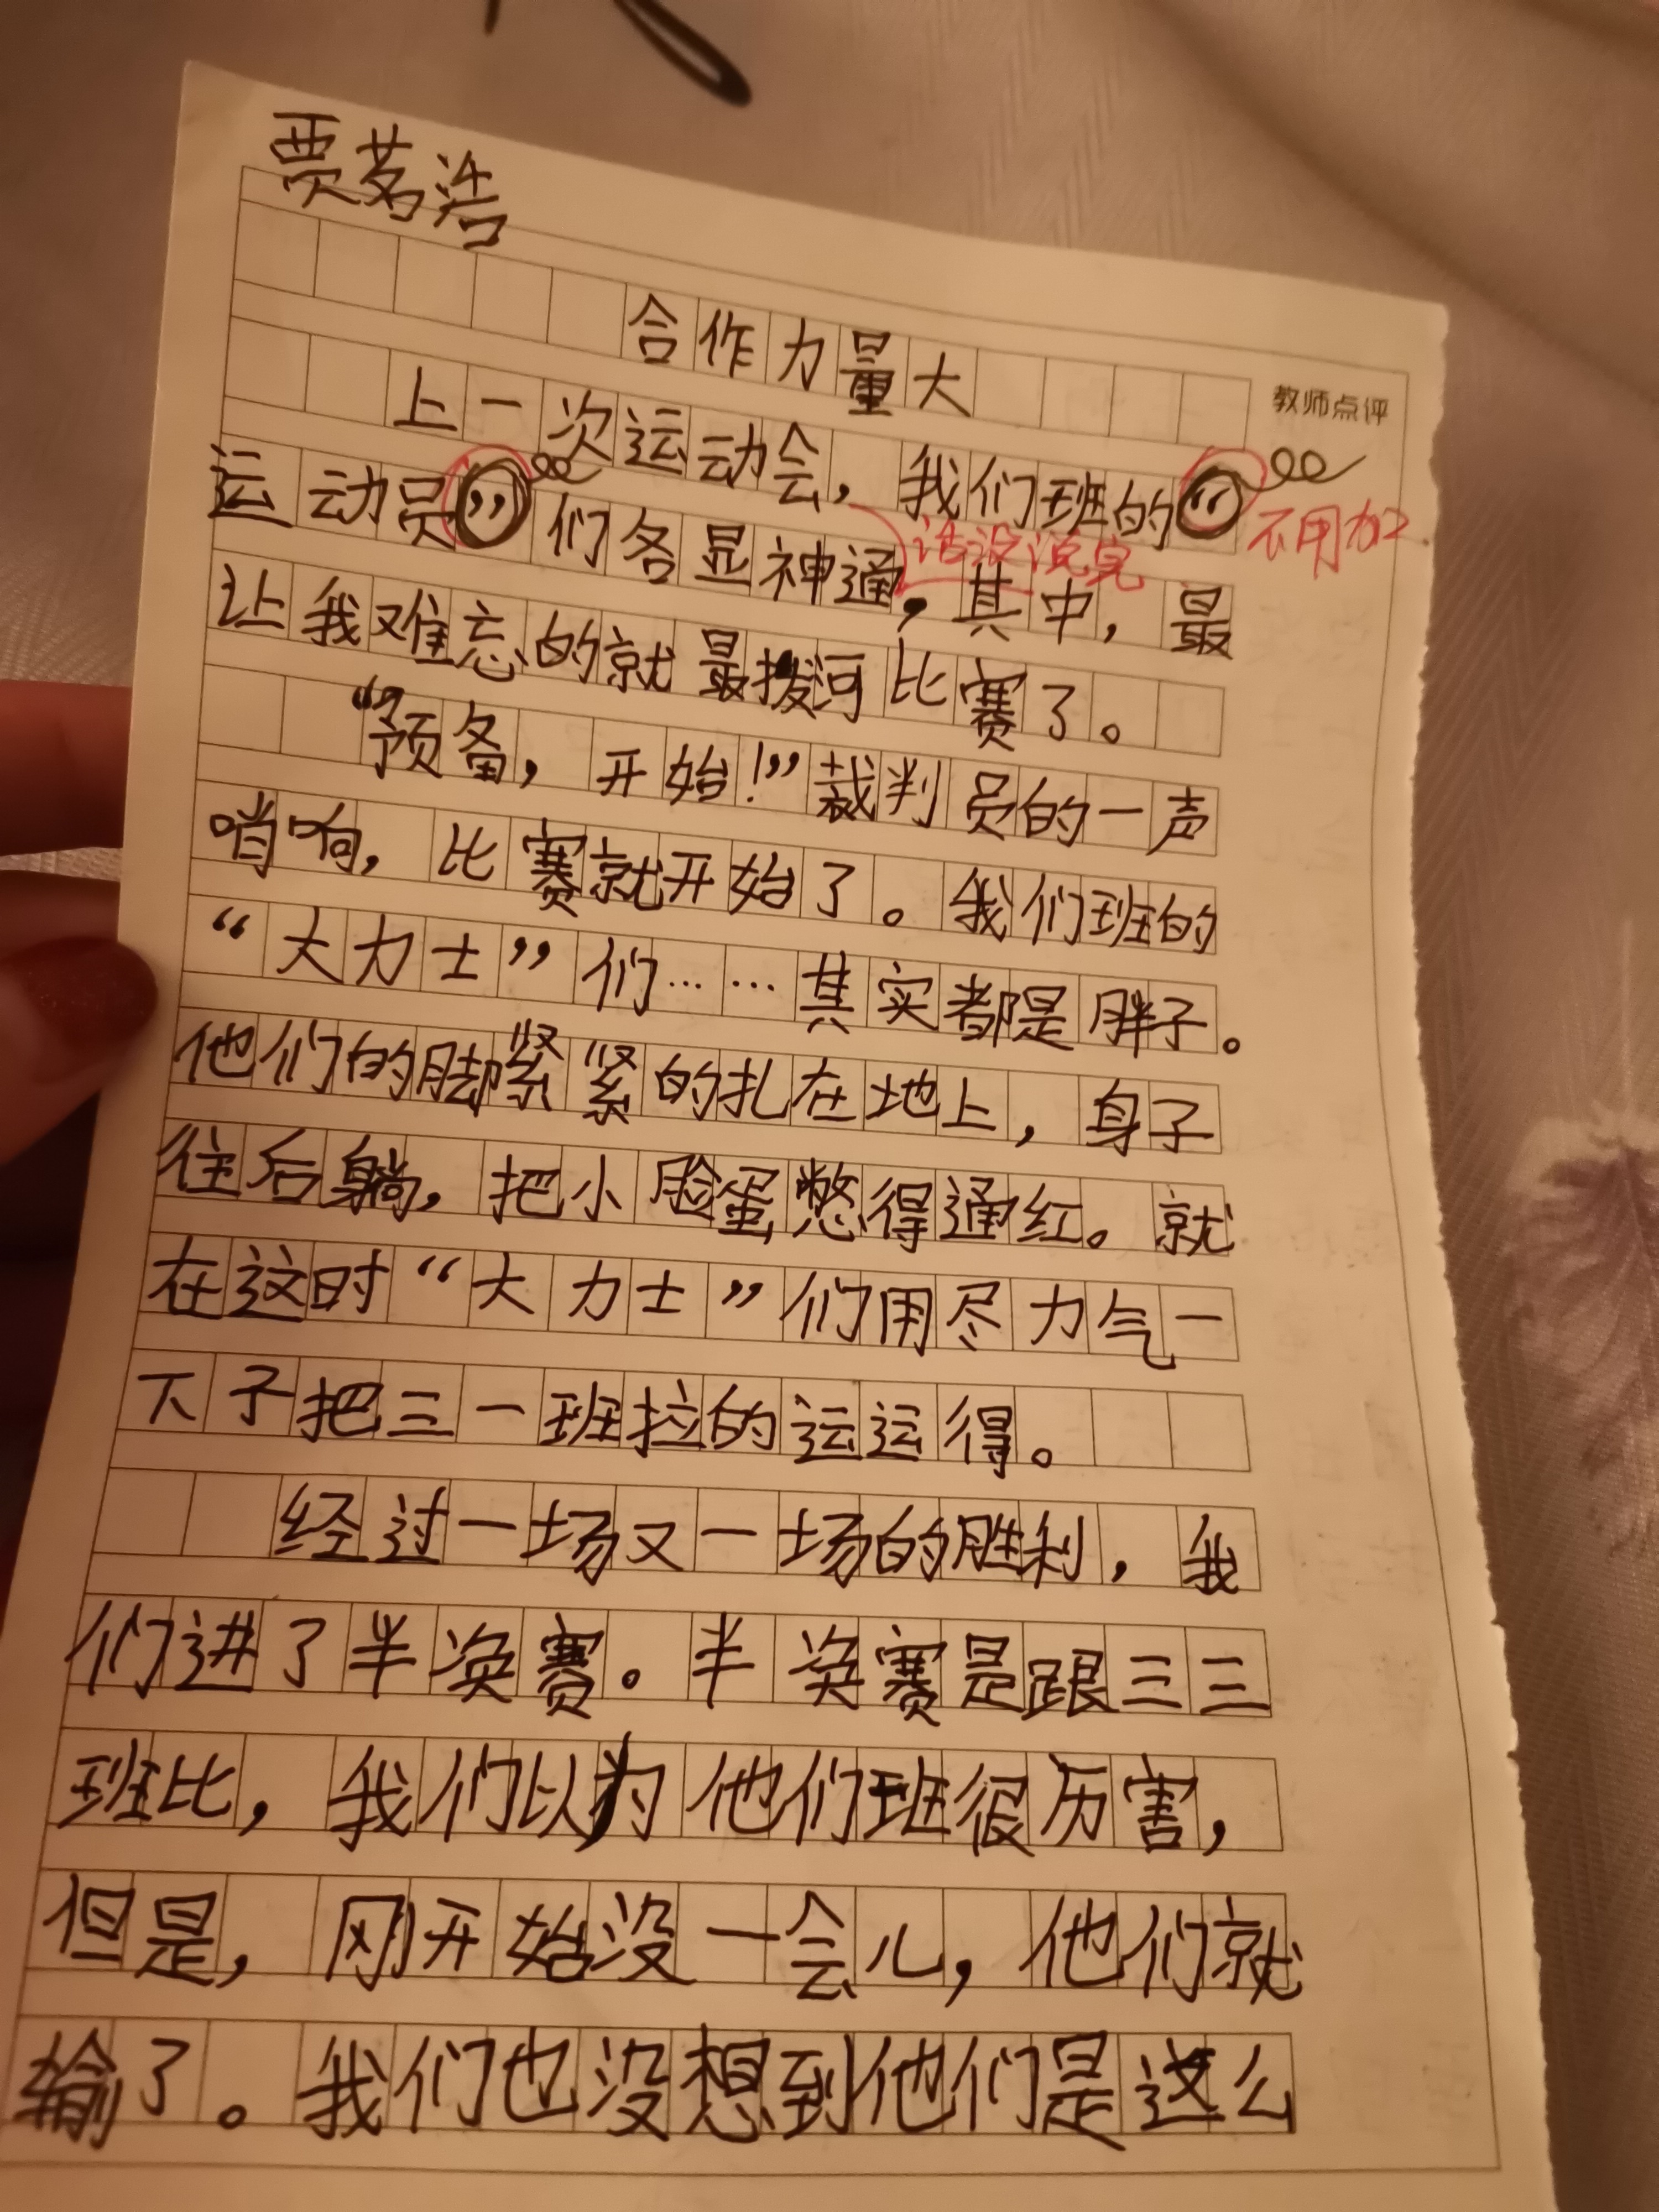 贾茗浩
合作力量大
教师点评
上一次运动会，我们班的“
不用加
运动员”们各显神通，其中，最
话没说完
让我难忘的就最拨河比赛了。
“预备，开始！”裁判员的一声
哨响，比赛就开始了。我们班的
“大力士”们……其实都是胖子。
他们的脚紧紧的扎在地上，身子
往后躺，把小脸蛋憋得通红。就
在这时“大力士”们用尽力气一
下子把三一班拉的运运得。
经过一场又一场的胜利，我
们进了半涣赛。半涣赛是跟三三
班比，我们以为他们班很历害，
但是，刚开始没一会儿，他们就
输了。我们也没想到他们是这么